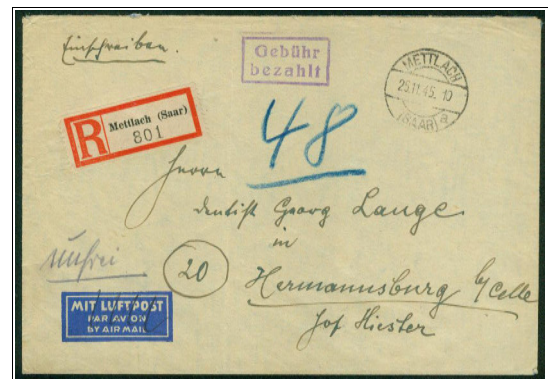 Einschreiben.
Gebühr
bezahlt
METTLACH
25.11.45. 10
(SAAR) a
R Mettlach (Saar)
801
48
Herrn
Dentist Georg Lange
in
unfrei
20
Hermannsburg b/Celle
Hof Hiester
MIT LUFTPOST
PAR AVION
BY AIR MAIL